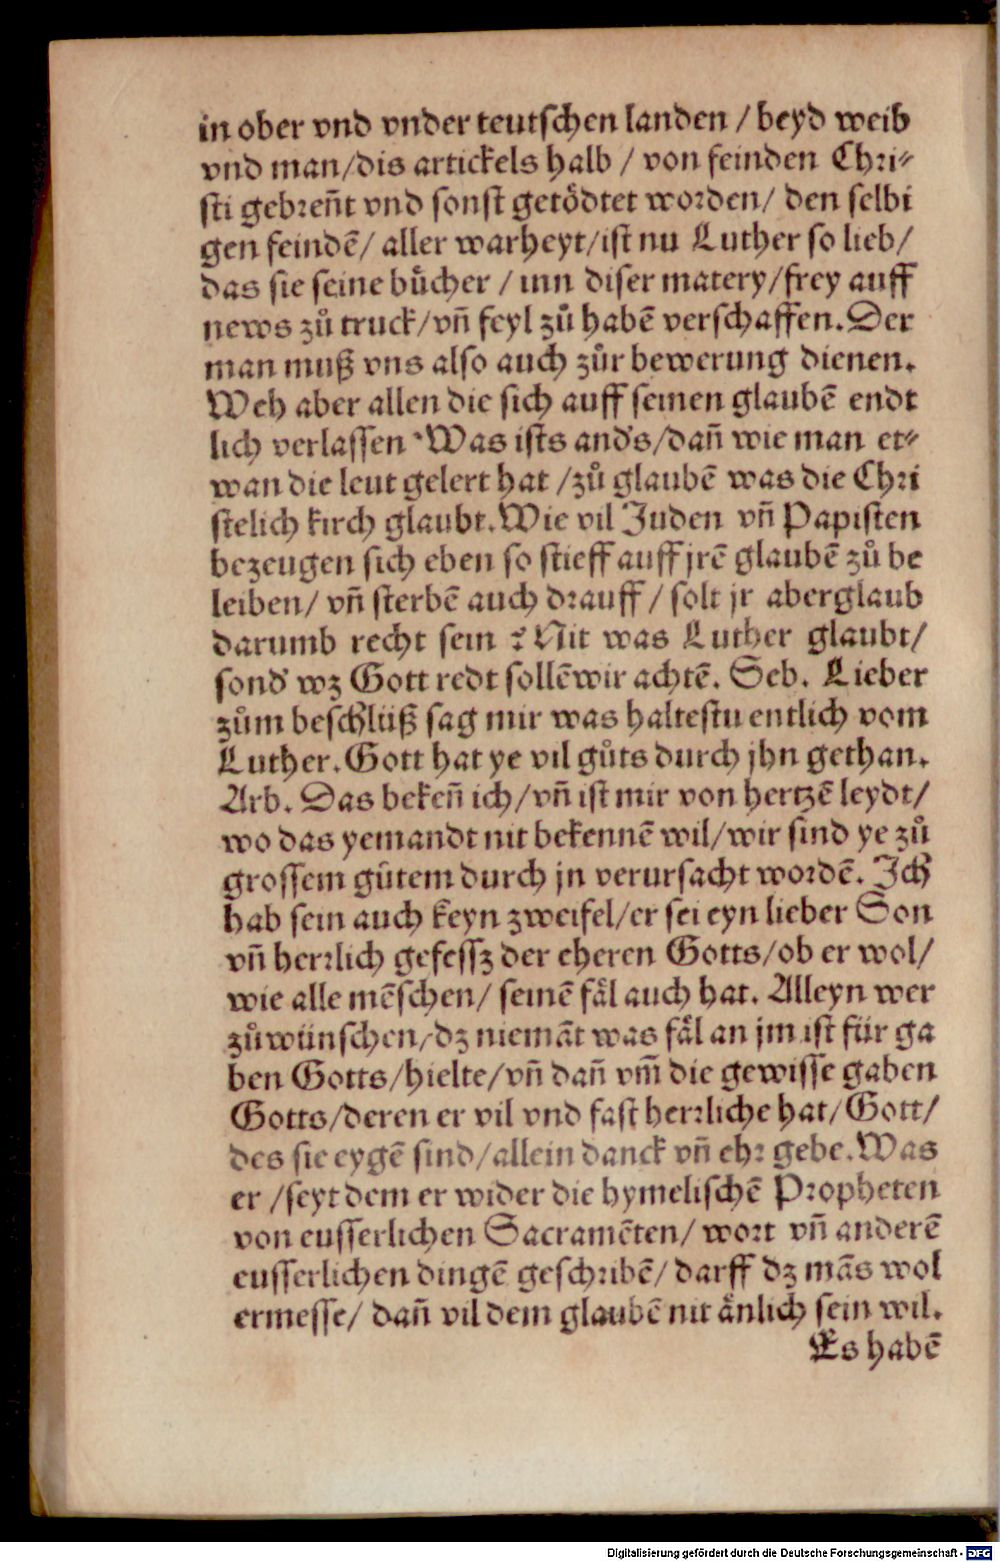 in ober vnd vnder teutschen landen / beyd weib
vnd man/dis artickels halb / von feinden Chri⸗
sti gebren̄t vnd sonst getödtet worden/ den selbi
gen feindē/ aller warheyt/ist nu Luther so lieb/
das sie seine bůcher / inn diser matery/frey auff
news zů truck/vn̄ feyl zů habē verschaffen. Der
man muß vns also auch zůr bewerung dienen.
Weh aber allen die sich auff seinen glaubē endt
lich verlassen Was ists and's/dan̄ wie man et⸗
wan die leut gelert hat /zů glaubē was die Chri
stelich kirch glaubt. Wie vil Juden vn̄ Papisten
bezeugen sich eben so stieff auff jrē glaubē zů be
leiben/ vn̄ sterbē auch drauff / solt jr aberglaub
darumb recht sein ? Nit was Luther glaubt/
sond' wz Gott redt sollē wir achtē. Seb. Lieber
zům beschlüß sag mir was haltestu entlich vom
Luther. Gott hat ye vil gůts durch jhn gethan.
Arb. Das beken̄ ich/vn̄ ist mir von hertzē leydt/
wo das yemandt nit bekennē wil/wir sind ye zů
grossem gůtem durch jn verursacht wordē. Ich
hab sein auch keyn zweifel/er sei eyn lieber Son
vn̄ herrlich gefessz der eheren Gotts/ob er wol/
wie alle mēschen/ seinē fäl auch hat. Alleyn wer
zů wünschen/dz niemāt was fäl an jm ist für ga
ben Gotts/hielte/vn̄ dan̄ vm̄ die gewisse gaben
Gotts/deren er vil vnd fast herrliche hat/Gott/
des sie eygē sind/allein danck vn̄ ehr gebe. Was
er /seyt dem er wider die hymelischē Propheten
von eusserlichen Sacramēten/ wort vn̄ anderē
eusserlichen dingē geschribē/ darff dz mās wol
ermesse/ dan̄ vil dem glaubē nit änlich sein wil.
Es habē
Digitalisierung gefördert durch die Deutsche Forschungsgemeinschaft - DFG